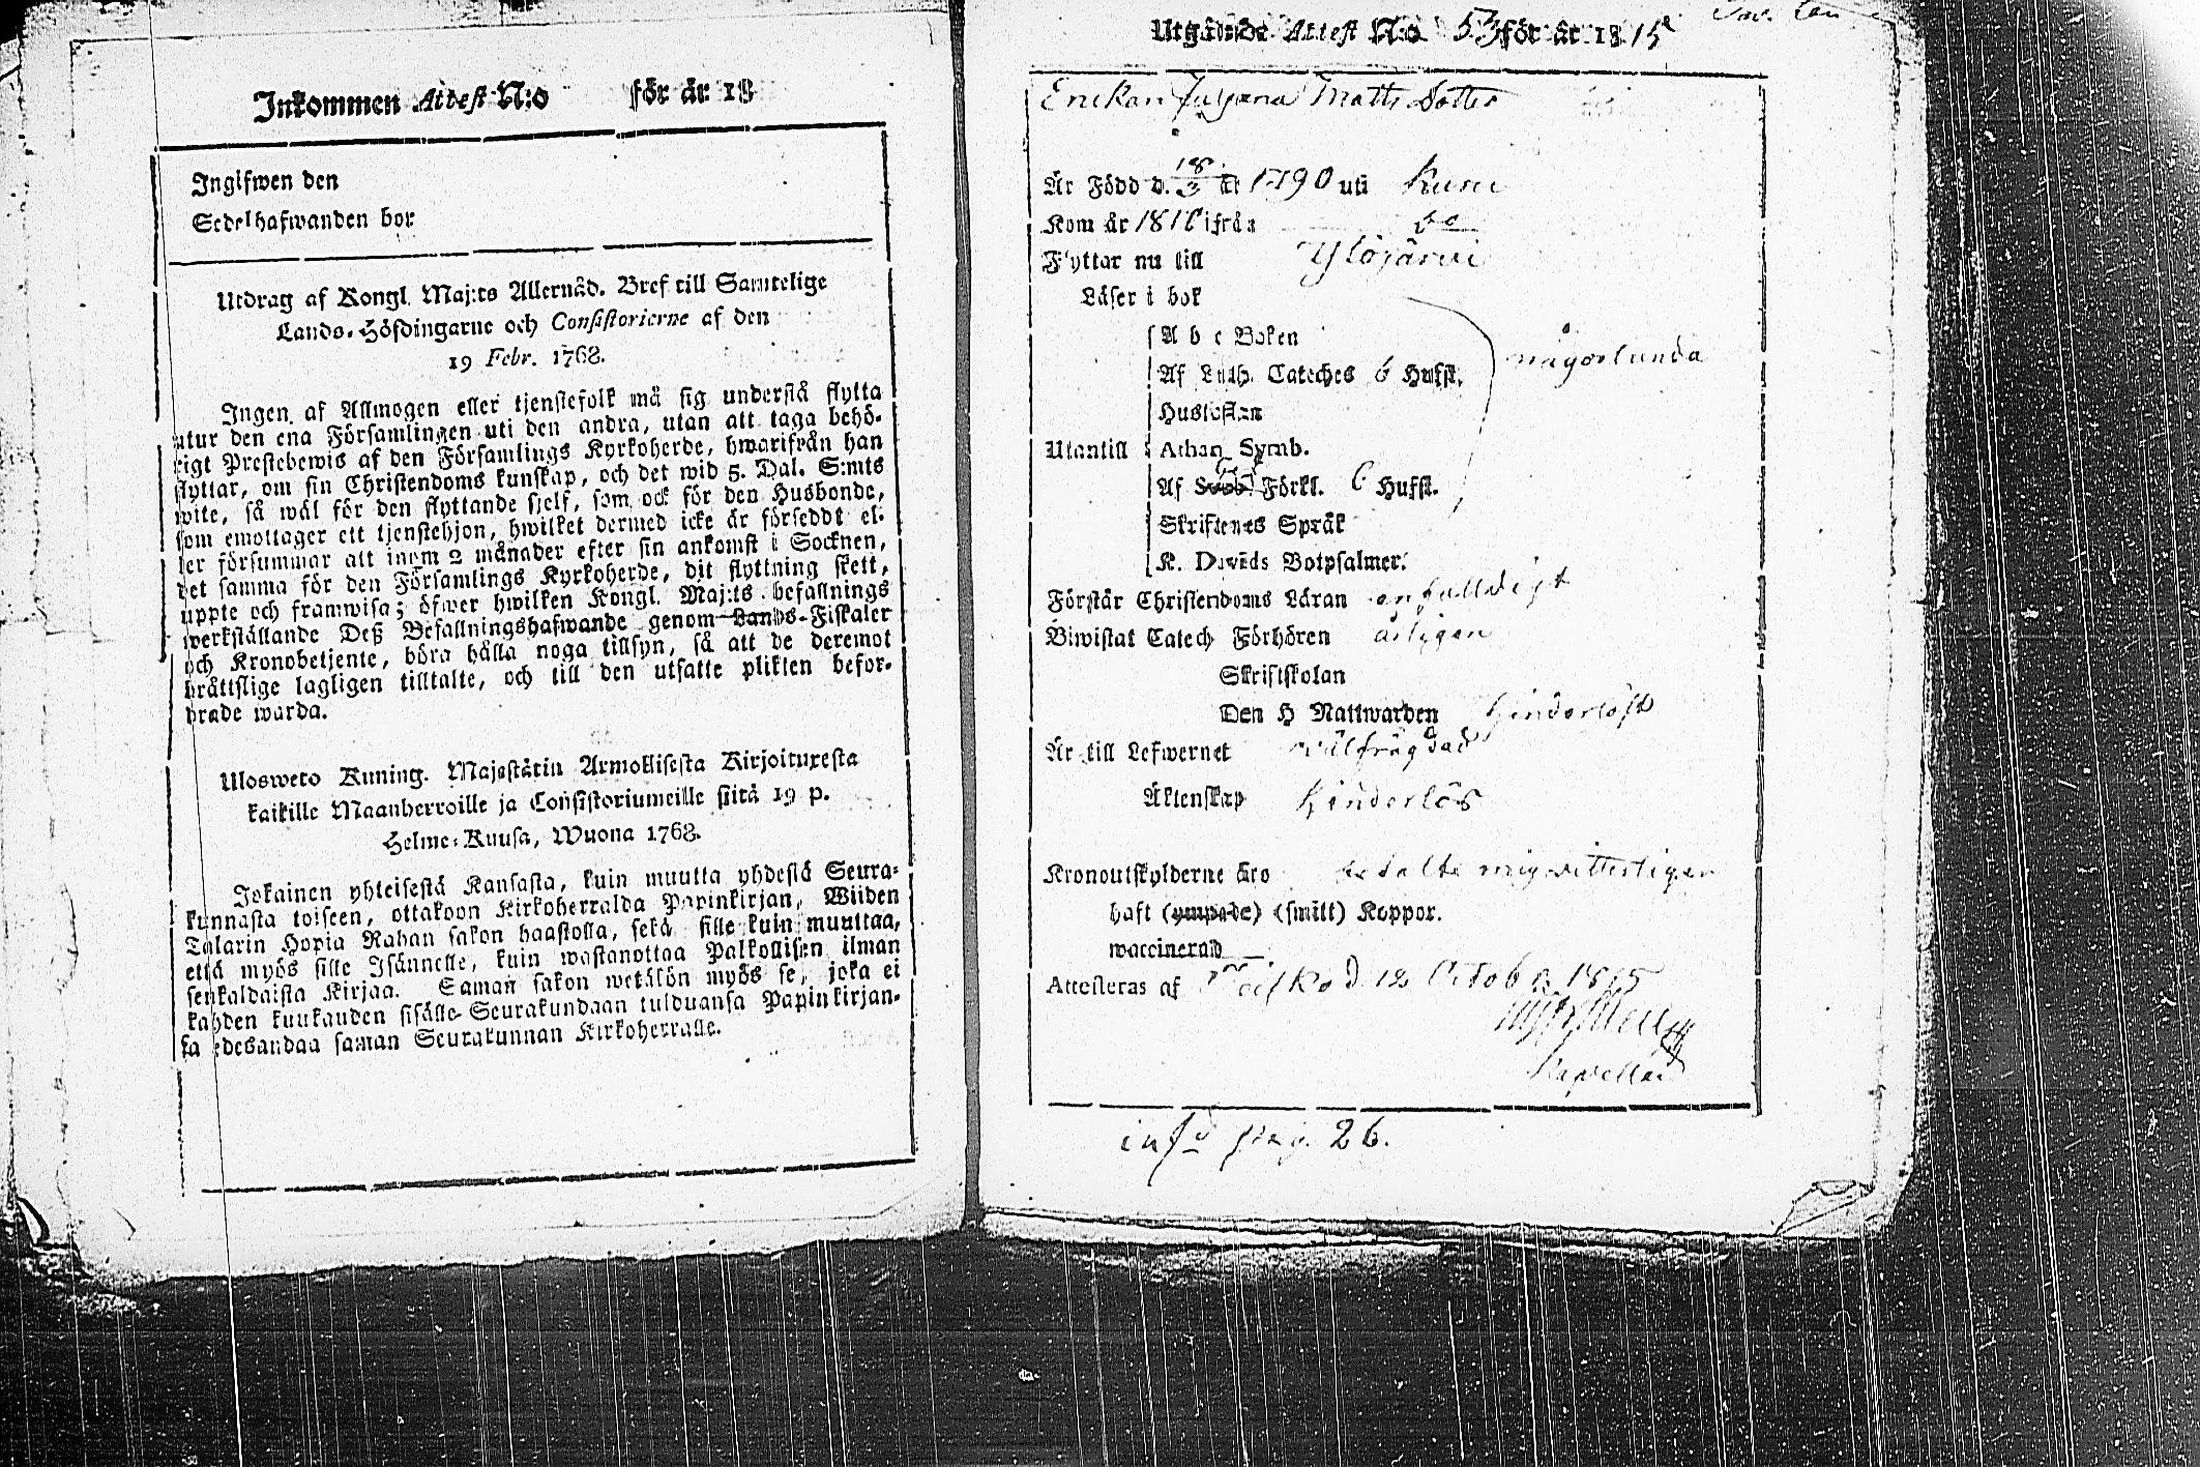 Inkommen Attest N:o för år 18
Ingifwen den
Sedelhafwanden bor
Utdrag af Kongl. Maj:ts Allernåd. Bref till Samtelige
Lands-Höfdingarne och Consistorierne af den
19 Febr. 1768.
Ingen af Allmogen eller tjenstefolk må sig understå flytta
utur den ena Församlingen uti den andra, utan att taga behö-
rigt Prestebewis af den Församlings Kyrkoherde, hwarifrån han
flyttar, om sin Christendoms kunskap, och det wid 5. Dal. S:mts
wite, så wäl för den flyttande sjelf, som ock för den Husbonde,
som emottager ett tjenstehjon, hwilket dermed icke är försedt el-
ler försummar att inom 2 månader efter sin ankomst i Socknen,
det samma för den Församlings Kyrkoherde, dit flyttning skett,
uppte och framwisa; öfwer hwilken Kongl. Maj:ts befallnings
werkställande Deß Befallningshafwande genom Lands-Fiskaler
och Kronobetjente, böra hålla noga tillsyn, så att de deremot
bråttslige lagligen tilltalte, och till den utsatte plikten befor-
drade warda.
Ulosweto Kuning. Majestätin Armollisesta Kirjoituxesta
kaikille Maanherroille ja Consistoriumeille siitä 19 p.
Helme-Kuusa, Wuona 1768.
Jokainen yhteisestä Kansasta, kuin muutta yhdestä Seura-
kunnasta toiseen, ottakoon Kirkoherralda Papinkirjan, Wiiden
Talarin Hopia Rahan sakon haastolla, sekä sille kuin muuttaa,
että myös sille Isännelle, kuin wastanottaa Palkollisen ilman
senkaldaista Kirjaa. Saman sakon wetälön myös se, joka ei
kahden kuukauden sisälle Seurakundaan tulduansa Papinkirjan-
sa edesandaa saman Seurakunnan Kirkoherralle.
Utgående Attest N:o 53 för år 1815
Enckan Matts Dotter
Är Född d. 18/3 år 1790 uti Kuru
Kom år 181 ifrån do
Flyttar nu till Ylöjärwi
Läser i bok
A b c Boken
Af Luth. Cateches 6 Hufst. någorlunda
Hustaflan
Utantill Athan. Symb.
Af Förkl. 6 Hufst.
Skriftenes Språk
K. Davids Botpsalmer.
Förstår Christendoms Läran enfalldigt
Biwistat Catech Förhören årligen
Skriftskolan
Den H Nattwarden hinderlöst
Är till Lefwernet wälfrägdad
Äktenskap hinderlös
Kronoutskylderne äro betalte mig vitterligen
haft (ympade) (smitt) Koppor.
waccinerad
Attesteras af d. 12 Octob. 1815
Kapellan
pag. 26.